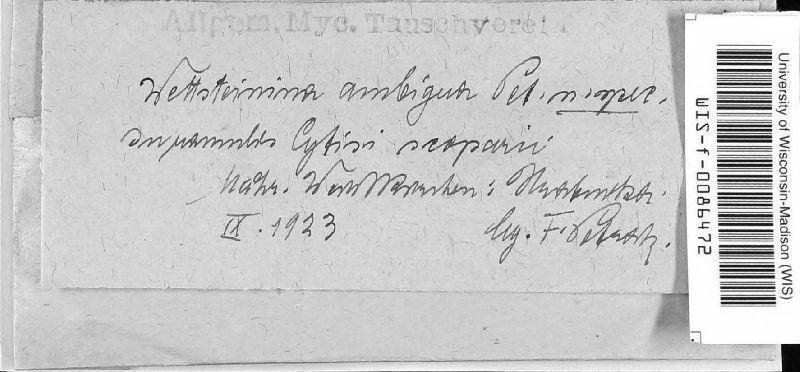 Allgem. Myc. Tauschverei .
Wettsteinina ambigua Pet. n. spec.
In ramulis Cytisi scoparii
Mähr. Weisskirchen: Hrabuvka.
IX. 1923 leg. F. Petrak.
University of Wisconsin-Madison (WIS)
WIS-f-0086472